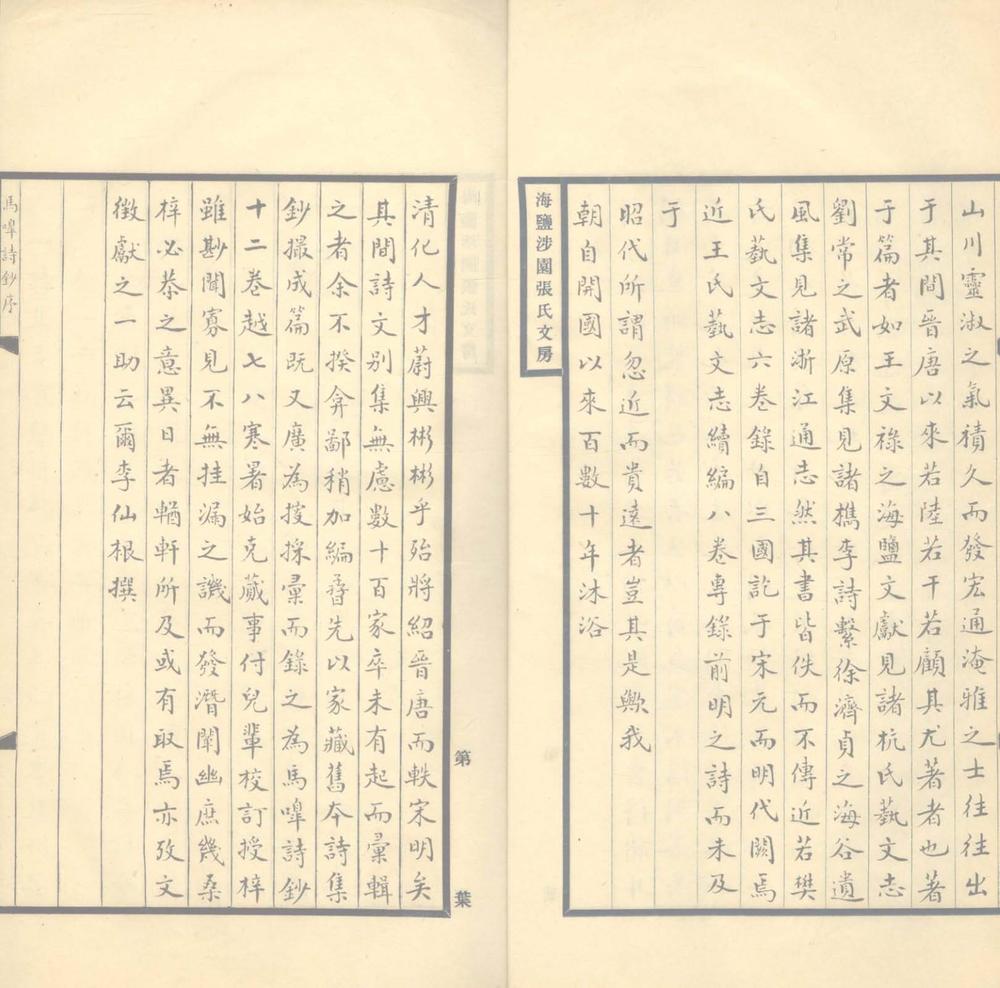 山川靈淑之氣積久而發宏通淹雅之士往往出
于其間晉唐以來若陸若干若顧其尤著者也著
于篇者如王文祿之海鹽文獻見諸杭氏藝文志
劉常之武原集見諸檇李詩繫徐濟貞之海谷遺
風集見諸浙江通志然其書皆佚而不傳近若樊
氏藝文志六卷錄自三國訖于宋元而明代闕焉
近王氏藝文志續編八卷專錄前明之詩而未及
于
昭代所謂忽近而貴遠者豈其是歟我
朝自開國以來百數十年沐浴
海鹽涉園張氏文房
清化人才蔚興彬彬乎殆將紹晉唐而軼宋明矣
其間詩文別集無慮數十百家卒未有起而彙輯
之者余不揆弇鄙稍加編摭先以家藏舊本詩集
鈔撮成篇既又廣為搜採彙而錄之為馬嘷詩鈔
十二卷越七八寒暑始克蕆事付兒輩校訂授梓
雖尠聞寡見不無挂漏之譏而發潛闡幽庶幾桑
梓必恭之意異日者輶軒所及或有取焉亦攷文
徵獻之一助云爾李仙根撰
馬嘷詩鈔序
第 葉